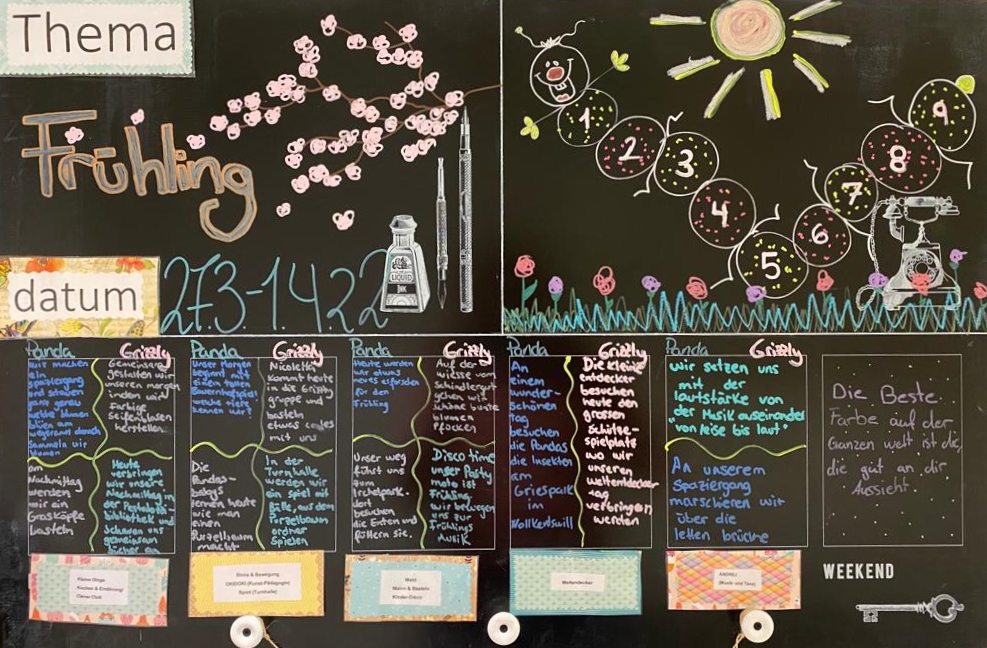 Thema
Frühling
datum
27.3-1.4.22
LIQUID
INK
1
2
3
4
5
6
7
8
9
Panda Grizzly
wir machen
ein
spaziergang
und schauen
ganz genau
welche blumen
blüen am
wegrand durch
Sammeln wir
blumen
Gemeinsam
gestalten wir
unseren morgen
indem wir
Farbige
Seifenblasen
herstellen.
am
Nachmittag
werden
wir ein
Grasköpfe
basteln
Heute
verbringen
wir unsere
Nachmittag in
der Pestalozzi-
bibliothek und
Schauen uns
gemeinsam
bücher an
Panda Grizzly
unser Morgen
beginnt mit
einem tollen
kennen wir?
Nicoletta
kommt heute
in die Grizzly
gruppe und
basteln
etwas cooles
mit uns
Die
Panda-
babys
lernen heute
wie man
einen
Purzelbaum
macht
In der
Turnhalle
werden wir
ein spiel mit
Bälle, aus dem
Purzelbaum
ordner
Spielen
Panda Grizzly
Heute werden
wir etwas
neues erforschen
für den
Frühling
Auf der
wiese vom
Schindlergut
gehen wir
schöne bunte
blumen
Pflücken
Unser weg
führt uns
zum
Irchelpark.
dort
besuchen
die Enten und
füttern sie.
Disco time
unser Party
moto ist
Frühling
wir bewegen
uns zur
Frühlings
Musik
Panda Grizzly
An
einem
wunder-
schönen
tag
besuchen
die Pandas
die insekten
am
Griespark
im
Volketswill
Die kleine
entdecker
besuchen
heute den
grossen
Schütze-
spielplatz
wo wir
unseren
weltentdecker-
tag
verbringen
werden
Panda Grizzly
wir setzen uns
mit der
lautstärke von
der Musik auseinander
"von leise bis laut"
An unserem
Spaziergang
marschieren wir
über die
letten brücke
Die Beste
Farbe auf der
Ganzen welt ist die,
die gut an dir
Aussieht.
WEEKEND
Kleine Dinge
Kochen & Ernährung/
Clever Club
Sinne & Bewegung
OKIDOKI (Kunst-Pädagogin)
Sport (Turnhalle)
Wald
Malen & Basteln
Kinder-Disco
Weltentdecker
ANDREJ
(Musik und Tanz)